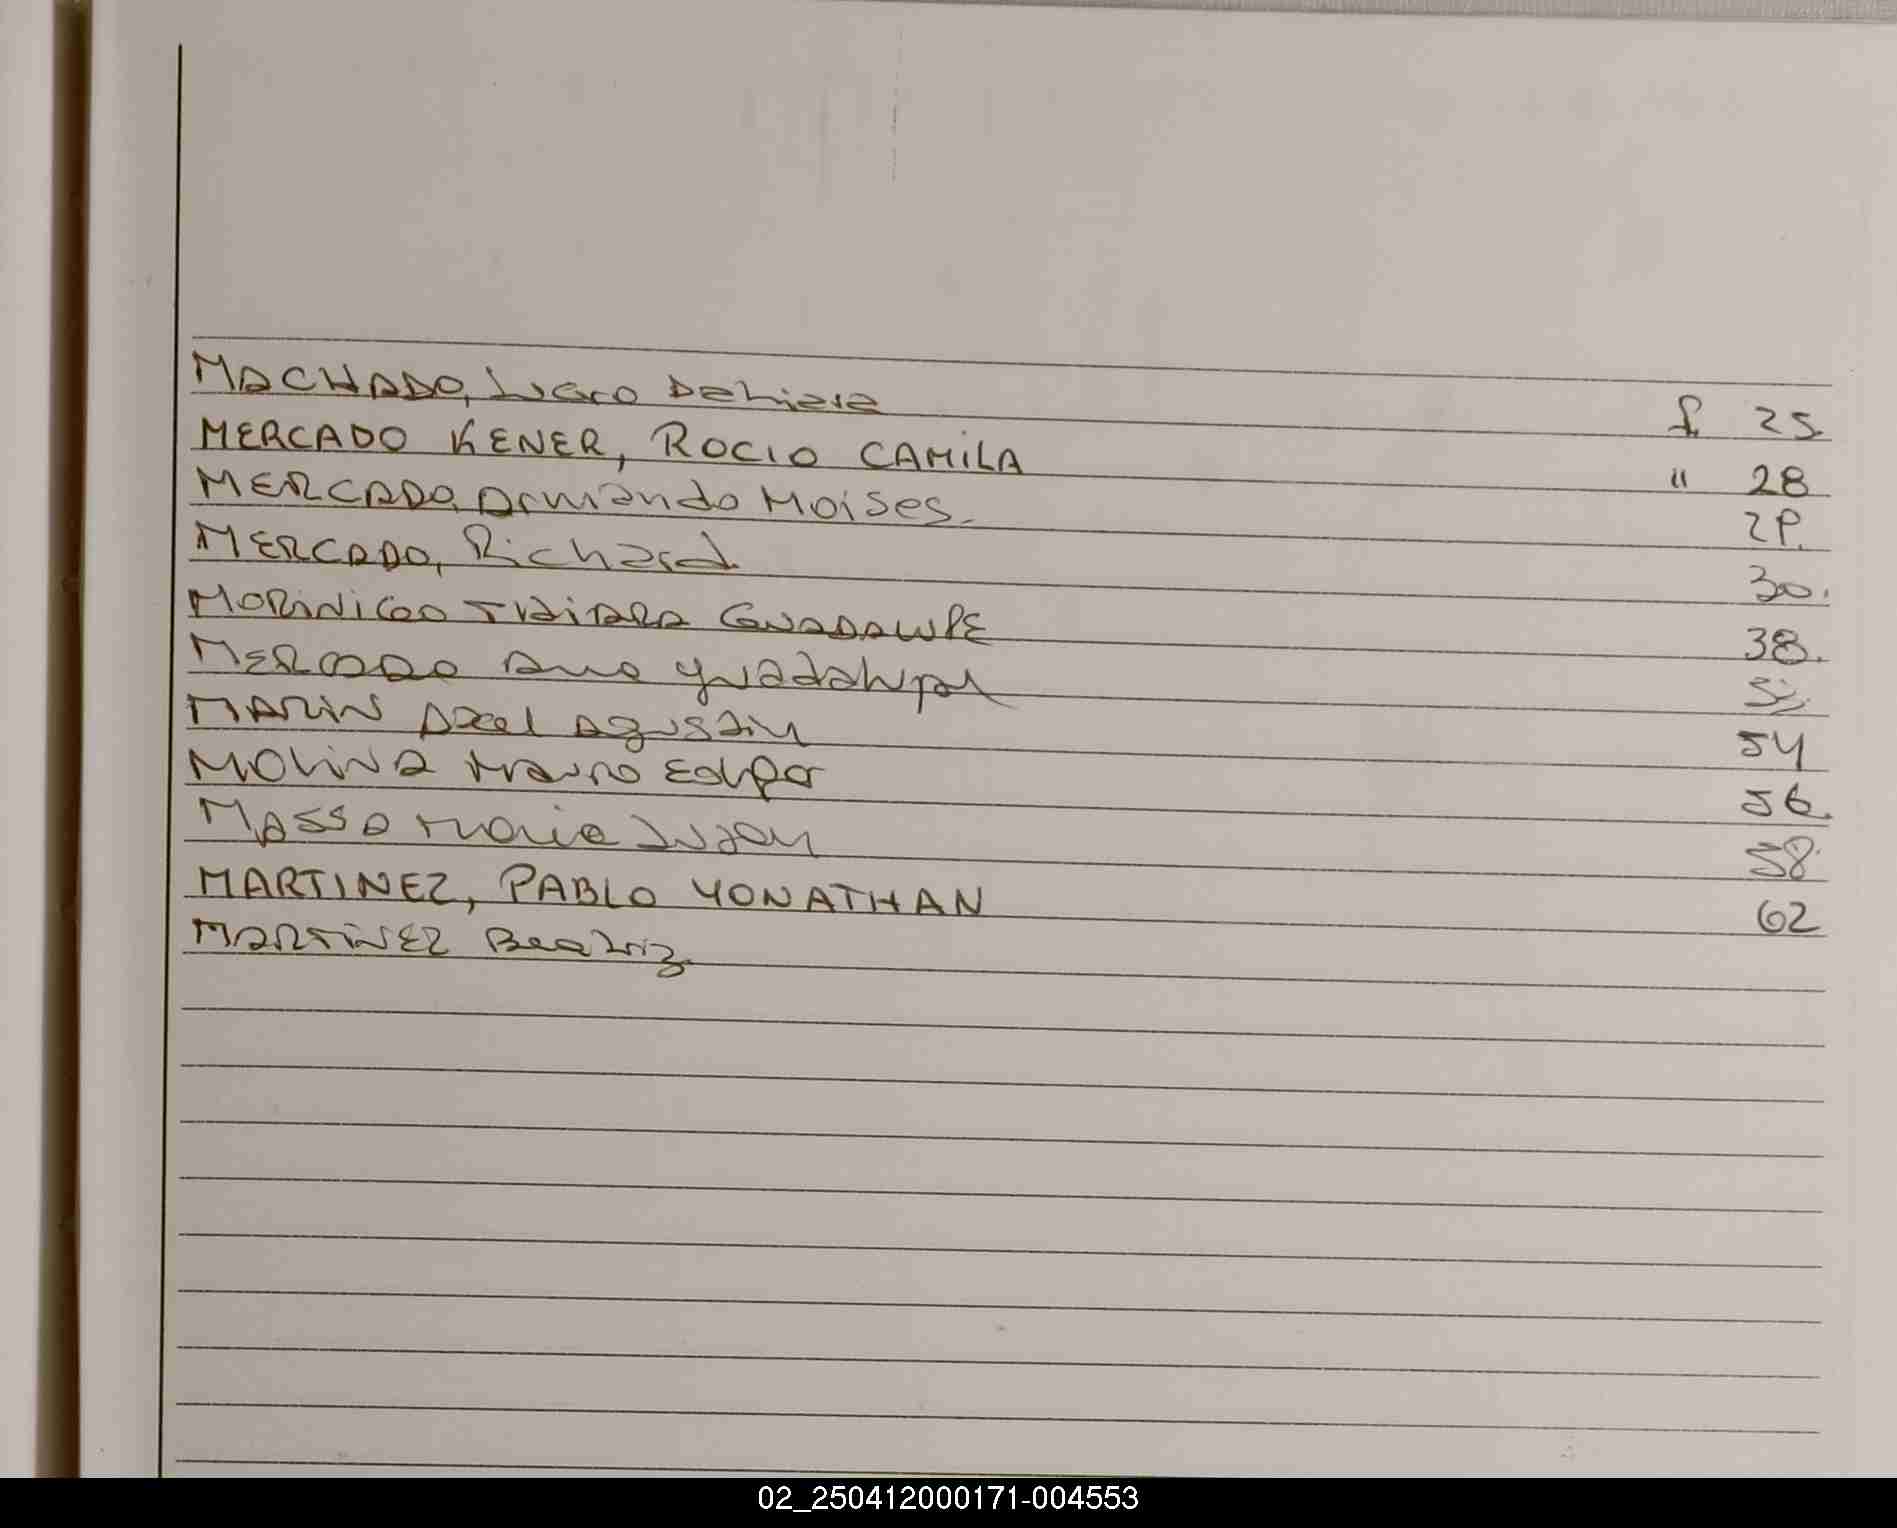 MACHADO, Lucero Dehiera f. 25.
MERCADO KENER, ROCIO CAMILA " 28
MERCADO, Armando Moises. 29.
MERCADO, Richard. 30.
MORiNiGO THAiARA GUADALUPE 38.
MERCADO Ana guadalupe
MARiN Axel Agustin 54
MOLiNA Mauro Edgar 56.
MASSO Maria Susan 58
MARTINEZ, PABLO YONATHAN 62
MARTiNEZ Beatriz.
02_250412000171-004553